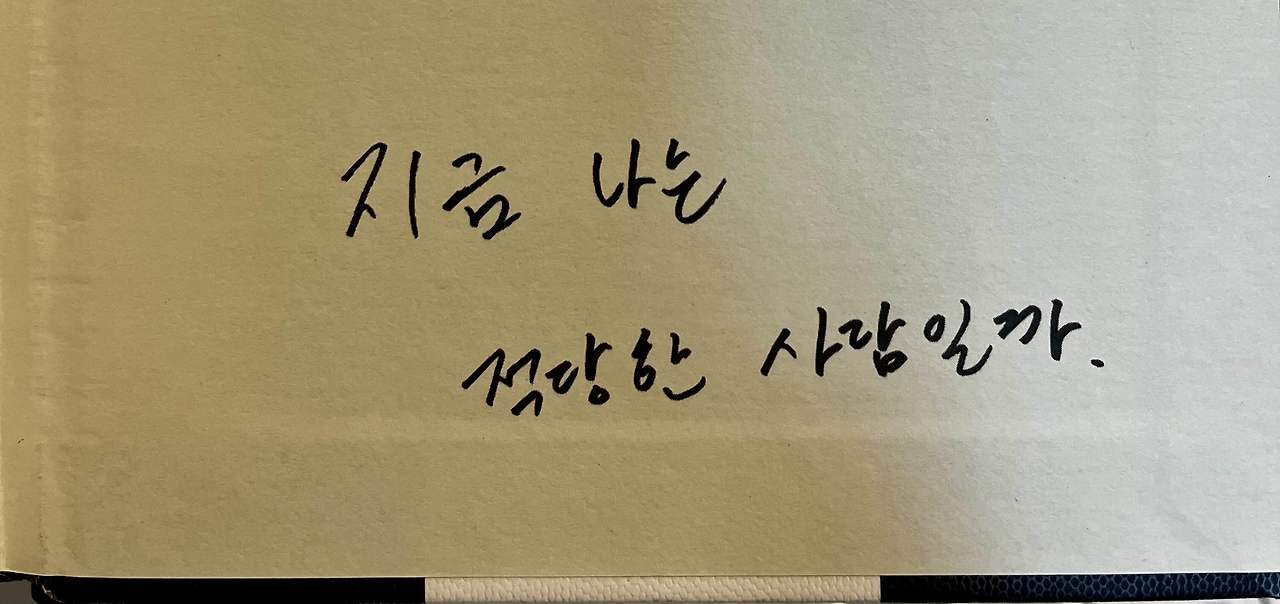 지금 나는
적당한 사람일까.